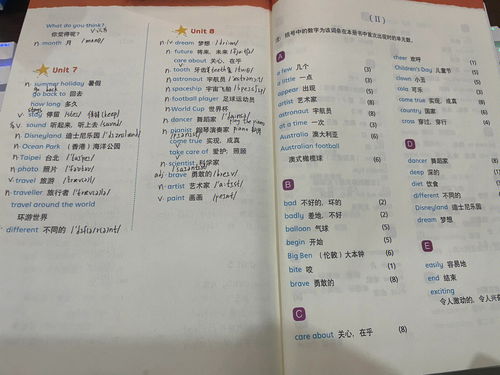 What do you think?
你觉得呢？
n month 月 /mʌnθ/
Unit 7
n summer holiday 暑假
go back to 回去
how long 多久
v stay 停留
sound 听起来，听上去 /saund/
n Disneyland 迪士尼乐园
n Ocean Park （香港）海洋公园
n Taipei 台北
n photo 照片
v travel 旅游
n traveller 旅行者
travel around the world
环游世界
different 不同的
Unit 8
n v dream 梦想 /dri:m/
n future 将来，未来
care about 关心，在乎
n tooth 牙齿
n astronaut 宇航员
n spaceship 宇宙飞船
n football player 足球运动员
n World Cup 世界杯
n dancer 舞蹈家
n pianist 钢琴演奏家
come true 实现，成真
take care of 爱护；照顾
n scientist 科学家
adj brave 勇敢的 /breɪv/
n artist 艺术家
v paint 画画 /peɪnt/
（II）
注：括号中的数字为该词条在本册书中首次出现时的单元数。
A
a few 几个 (3)
a little 一点 (3)
appear 出现 (5)
artist 艺术家 (8)
astronaut 宇航员 (8)
at a time 一次 (3)
Australia 澳大利亚 (6)
Australian football
澳式橄榄球 (6)
B
bad 不好的，坏的 (2)
badly 差地，不好 (2)
balloon 气球 (5)
begin 开始 (5)
Big Ben （伦敦）大本钟 (6)
bite 咬 (1)
brave 勇敢的 (8)
C
care about 关心，在乎 (8)
cheer 欢呼 (1)
Children's Day 儿童节 (5)
clown 小丑 (5)
cola 可乐 (3)
come true 实现，成真 (8)
country 国家 (6)
cross 穿过，穿行 (4)
D
dancer 舞蹈家 (8)
deep 深的 (1)
diet 饮食
different 不同的
Disneyland 迪士尼乐园
dream 梦想
E
easily 容易地
end 结束
exciting
令人激动的，令人兴奋